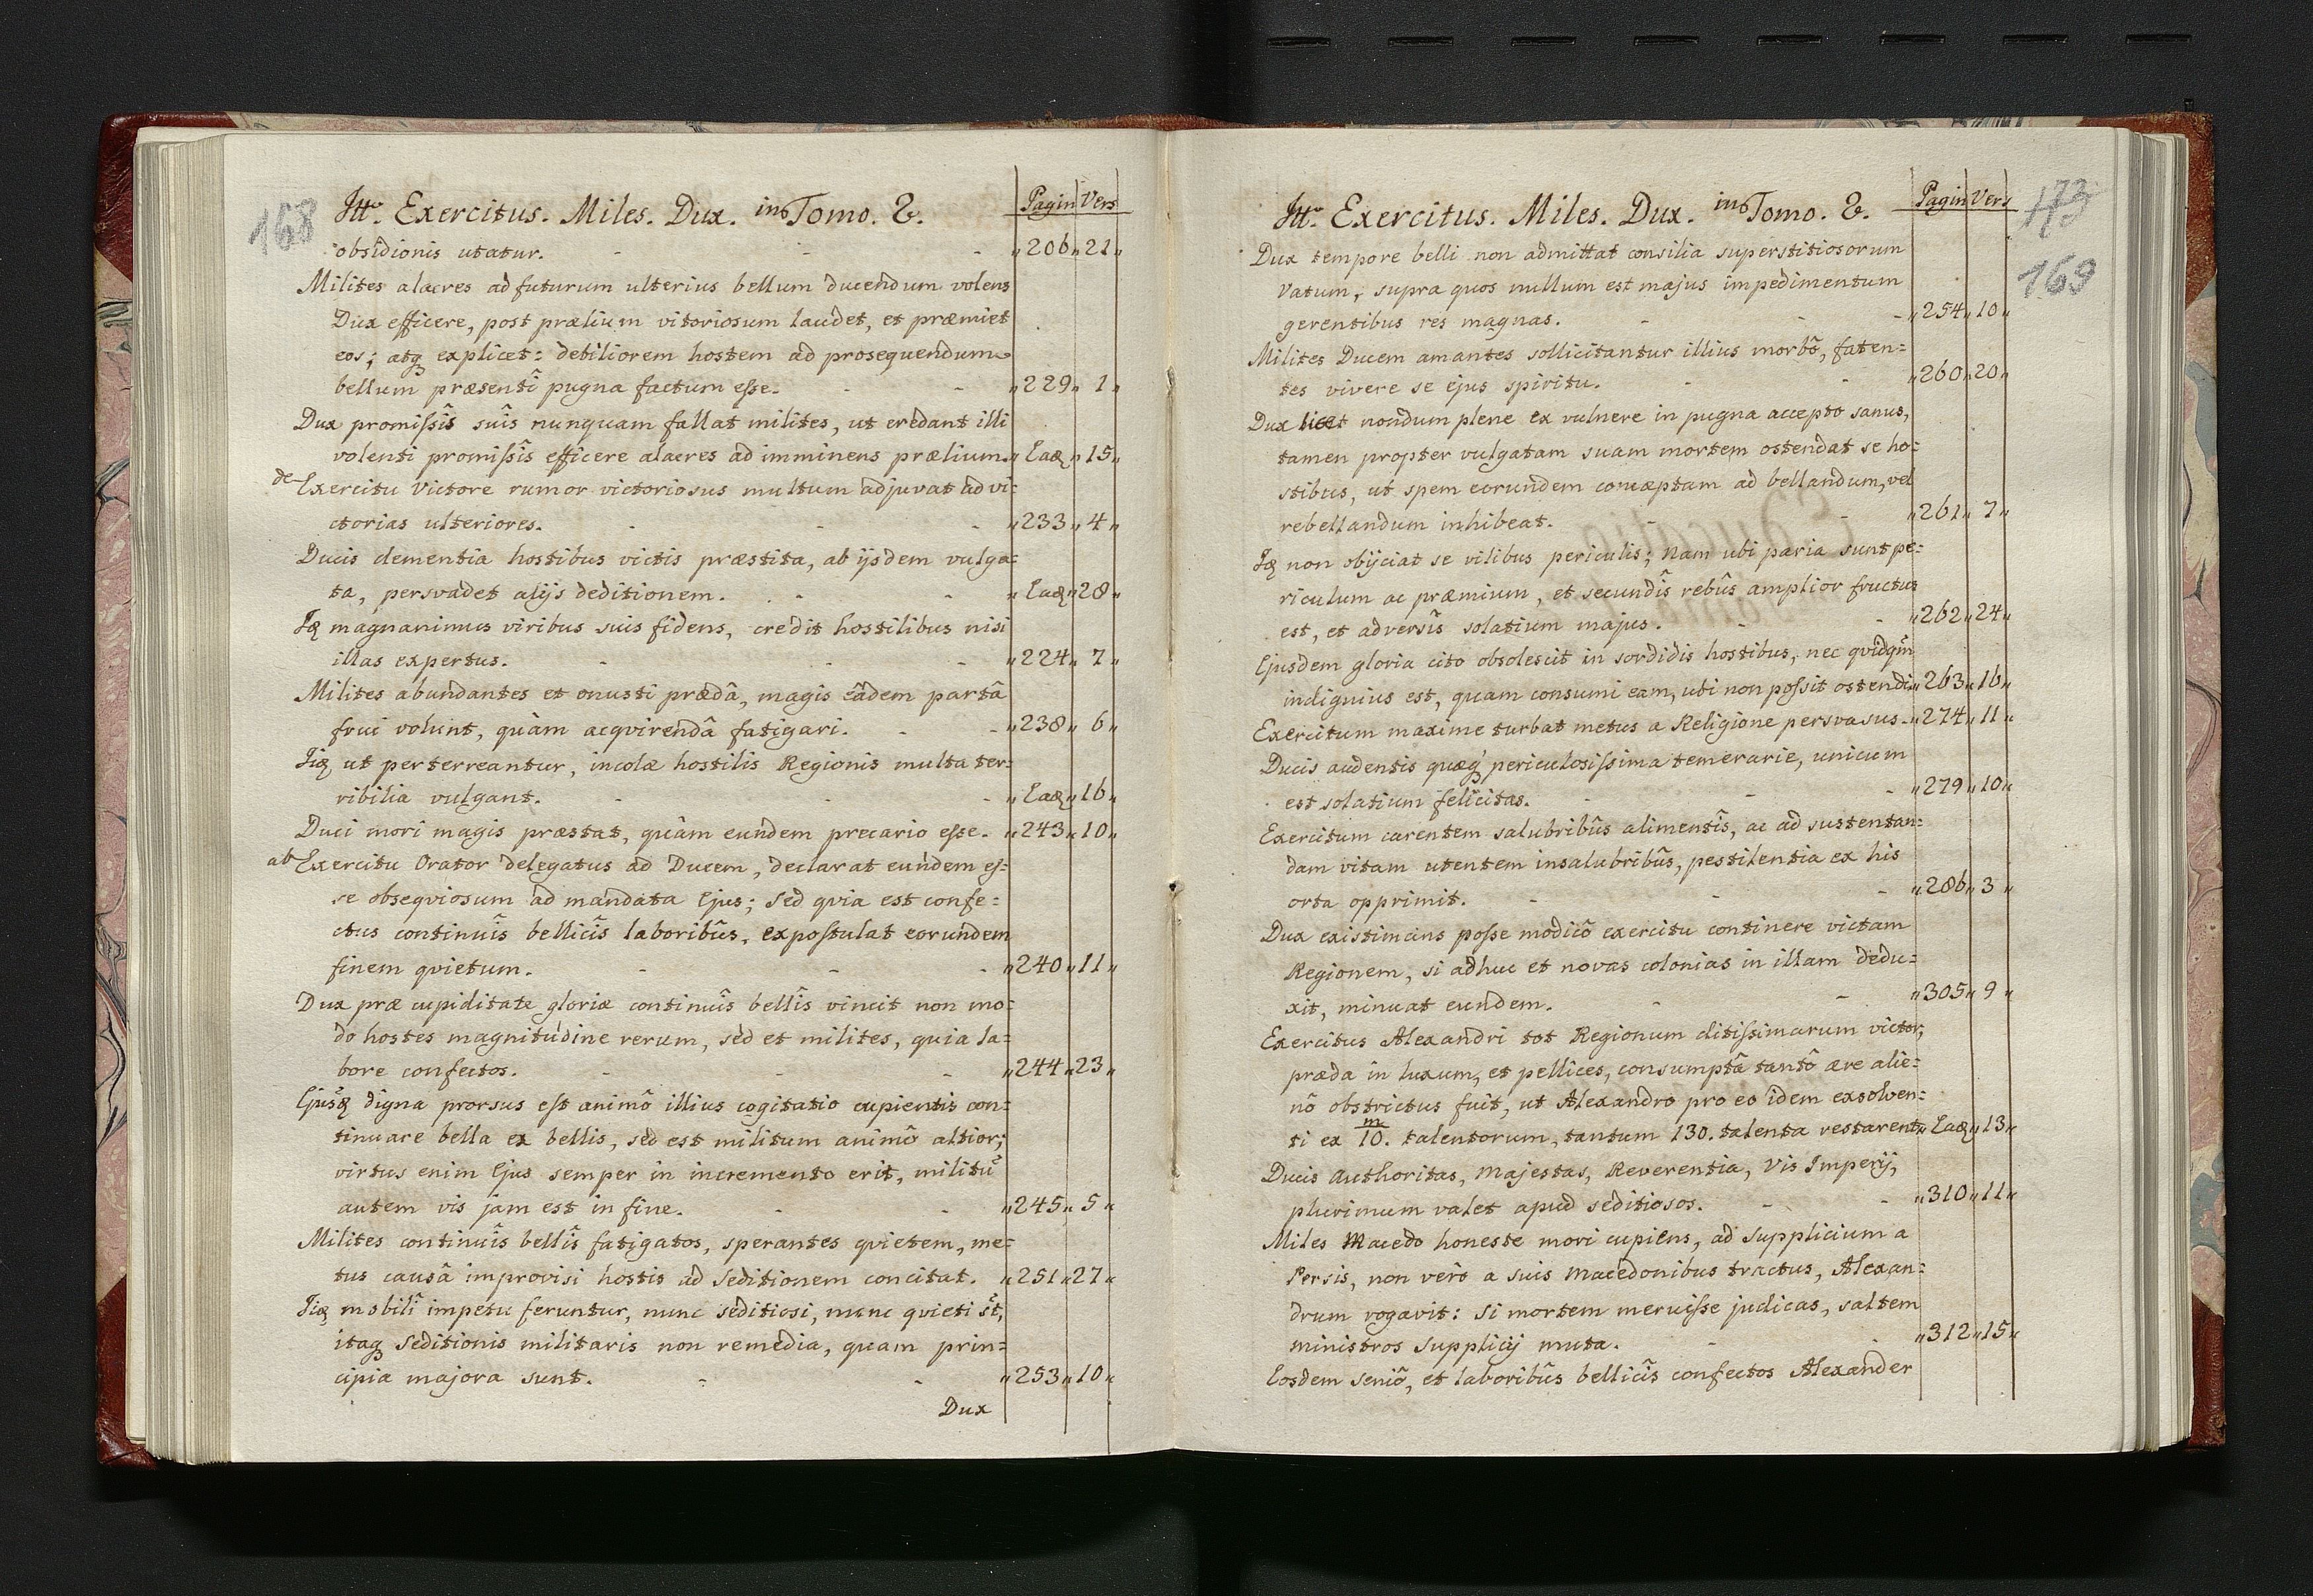 168
Itt. Exercitus. Miles. Dux. in Tomo. 2. Pagin Vers
obsidionis utatur. - - - „206„21„
Milites alacres ad futurum ulterius bellum ducendum volens
Dux efficere, post prælium vitoriosum laudet, et præmiet
eos; atq explicet: debiliorem hostem ad prosequendum
bellum præsentî pugna factum esse. - - „229„1„
Dux promissîs suîs nunquam fallat milites, ut credant illi
volenti promissîs efficere alacres ad imminens prælium. „Eaq„15„
de Exercitu Victore rumor victoriosus multum adjuvat ad vi=
ctorias ulteriores. - - - „233„4„
Ducis clementia hostibus victis præstita, ab ijsdem vulga=
ta, persvadet alijs deditionem. - - „Eaq„28„
Iq magnanimus viribus suis fidens, credit hostilibus nisi
illas expertus. - - - „224„7„
Milites abundantes et onusti prædâ, magis eâdem partâ
frui volunt, quàm acqvirendâ fatigari. - - „238„6„
Iiq ut perterreantur, incolæ hostilis Regionis multa ter=
ribilia vulgant. - - - „Eaq„16„
Duci mori magis præstat, quàm eundem precario esse. „243„10„
ab Exercitu Orator delegatus ad Ducem, declarat eundem es=
se obseqviosum ad mandata Ejus; sed qvia est confe=
ctus continuîs bellicîs laboribûs, expostulat eorundem
finem qvietum. - - - „240„11„
Dux præ cupiditate gloriæ continuîs bellîs vincit non mo=
do hostes magnitudine rerum, sed et milites, quia la=
bore confectos. - - - „244„23„
Ejusq digna prorsus est animô illius cogitatio cupientis con=
tinuare bella ex bellis, sed est militum animô altior;
virtus enim Ejus semper in incremento erit, militũ
autem vis jam est in fine. - - „245„5„
Milites continuîs bellîs fatigatos, sperantes qvietem, me=
tus causâ improvisi hostis ad seditionem concitat. „251„27„
Iiq mobilî impetu feruntur, nunc seditiosi, nunc qvieti st̃,
itaq seditionis militaris non remedia, quam prin=
cipia majora sunt. - - „253„10„
Dux
Itt. Exercitus. Miles. Dux. in Tomo. 2. Pagin Vers
173
169
Dux tempore belli non admittat consilia superstitiosorum
Vatum, supra quos nullum est majus impedimentum
gerentibus res magnas. - - - „254„10„
Milites Ducem amantes sollicitantur illius morbô, faten=
tes vivere se ejus spiritu. - - „260„20„
Dux licet nondum plene ex vulnere in pugna accepto sanus,
tamen propter vulgatam suam mortem ostendat se ho=
stibus, ut spem eorundem concæptam ad bellandum, vel
rebellandum inhibeat. - - „261„7„
Iq non obijciat se vilibus periculis; Nam ubi paria sunt pe=
riculum ac præmium, et secundîs rebûs amplior fructus
est, et adversîs solatium majus. - - „262„24„
Ejusdem gloria cito obsolescit in sordidis hostibus, nec qvidqm̃
indignius est, quam consumi eam, ubi non possit ostendi. „263„16„
Exercitum maxime turbat metus a Religione persvasus. „274„11„
Ducis audentis quæq periculosissima temerarie, unicum
est solatium felicitas. - - - „279„10„
Exercitum carentem salubribûs alimentîs, ac ad sustentan=
dam vitam utentem insalubribûs, pestilentia ex his
orta opprimit. - - - „286„3„
Dux existimans posse modicô exercitu continere victam
Regionem, si adhuc et novas colonias in illam dedu=
xit, minuat eundem. - - „305„9„
Exercitus Alexandri tot Regionum ditissimarum victor,
præda in luxum, et pellices, consumptâ tantô ære alie=
nô obstrictus fuit, ut Alexandro pro eo idem exsolven=
ti ex m 10. talentorum, tantum 130. talenta restarent. „Eaq„13„
Ducis Authoritas, Majestas, Reverentia, Vis Imperij,
plurimum valet apud seditiosos. - - „310„11„
Miles Macedo honeste mori cupiens, ad supplicium a
Persis, non verò a suis Macedonibus tractus, Alexan=
drum rogavit: si mortem meruisse judicas, saltem
ministros supplicij muta. - - „312„15„
Eosdem seniô, et laboribûs bellicîs confectos Alexander